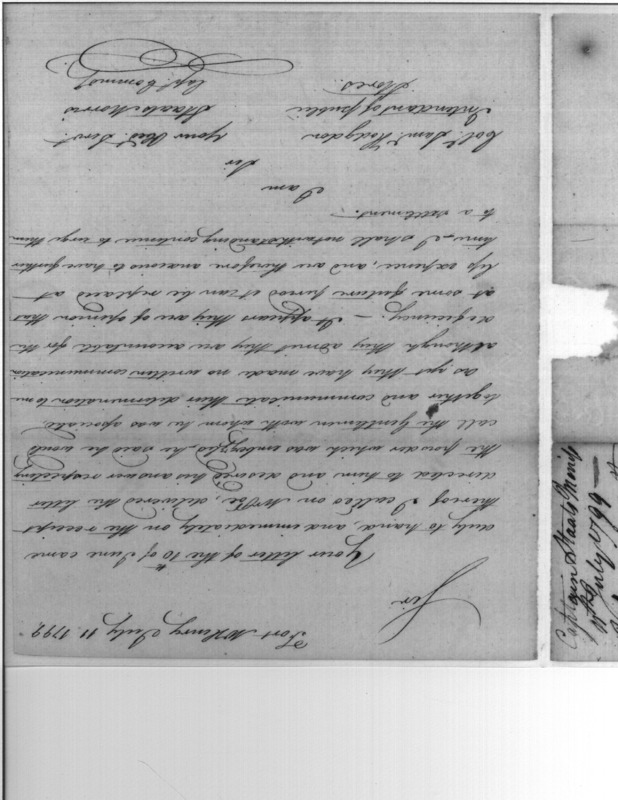 Fort McHenry July 11 1799
Sir
Your letter of the 10th of June came
duly to hand and immediately on the receipt
thereof I called on Mr. delivered the letter
directed to him and desired his answer respecting
the powder which was embezzled, he said he would
call the Gentlemen with whom he was associated
together and communicate their determination to me
as yet they have made no written communication
although they admit they are accountable for the
deficiency. — It appears they are of opinion that
at some future period it can be replaced at
less expence, and are therefore anxious to have further
time, I shall notwithstanding continue to urge them
to a settlement.
I am
Sir
Col. Saml. Hodgdon Your Obt. Servt.
Intendant of public Staats Morris
Stores. Capt. Commdt.
Captain Staats Morris
11th July 1799